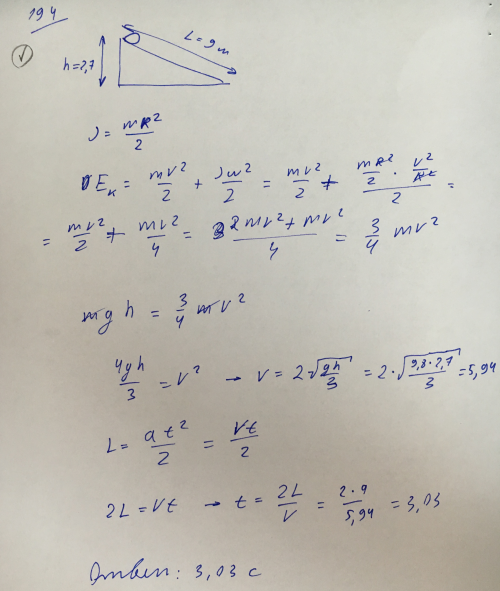 194
h=2,7
L=9m
J = mR²/2
E_k = mv²/2 + Jω²/2 = mv²/2 + (mR²/2 · v²/R²)/2 =
= mv²/2 + mv²/4 = (2mv² + mv²)/4 = 3/4 mv²
mgh = 3/4 mv²
4gh/3 = v² → v = 2√(gh/3) = 2·√(9,8·2,7/3) = 5,94
L = at²/2 = Vt/2
2L = Vt → t = 2L/V = 2·9/5,94 = 3,03
Ответ: 3,03 с